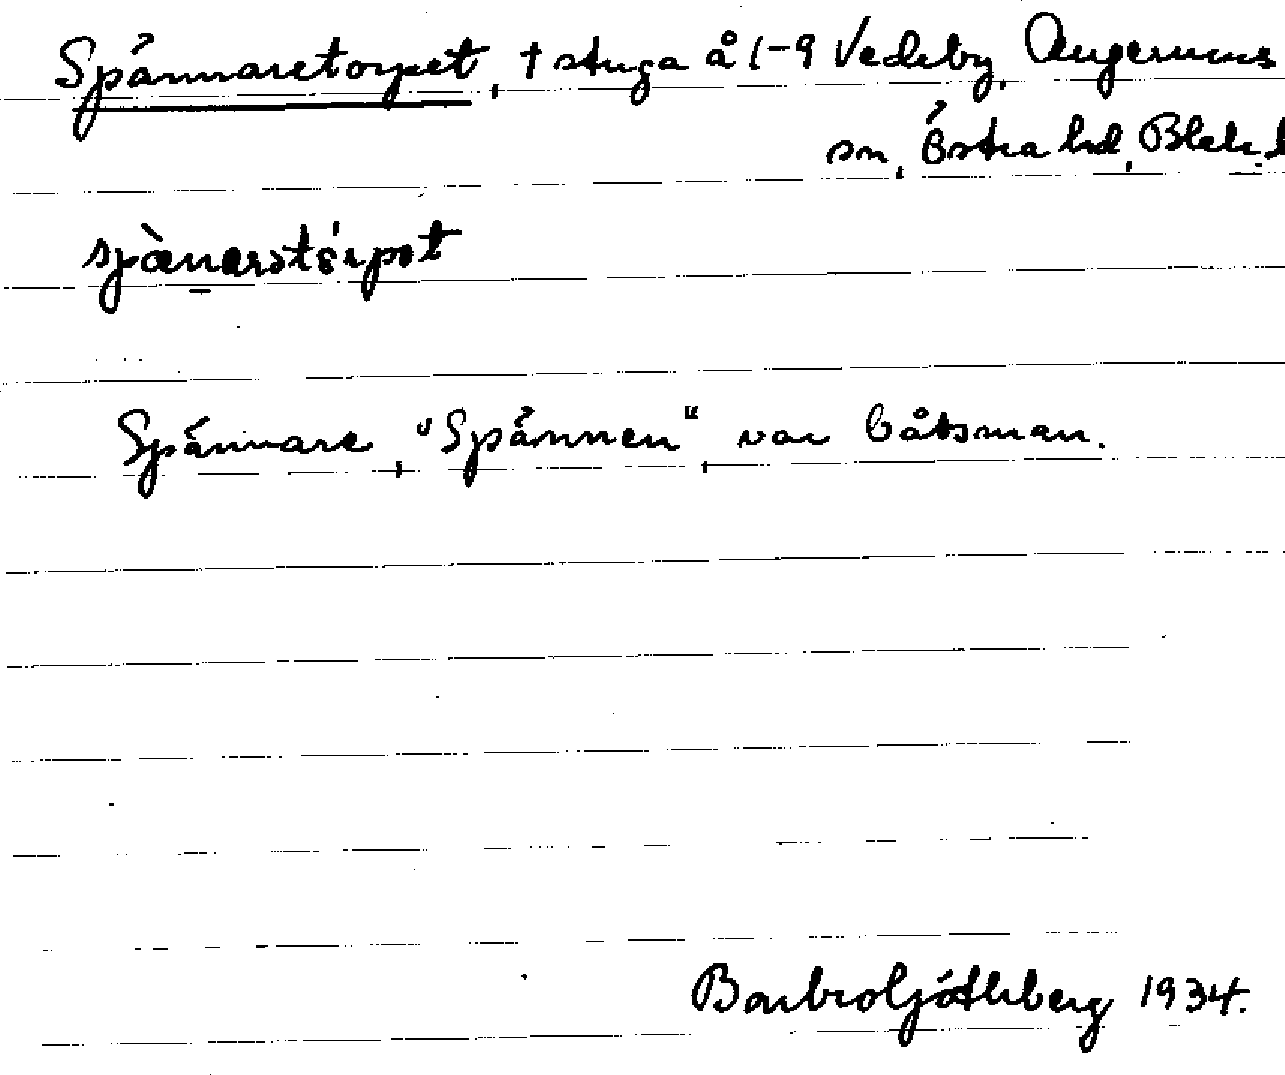 Spännaretorpet, † stuga å 1-9 Vedeby, Augerums
sn, Östra hd, Blek. l
spànarstórpot
Spännare, "Spännen", var båtsman.
Barbro Götherberg 1934.